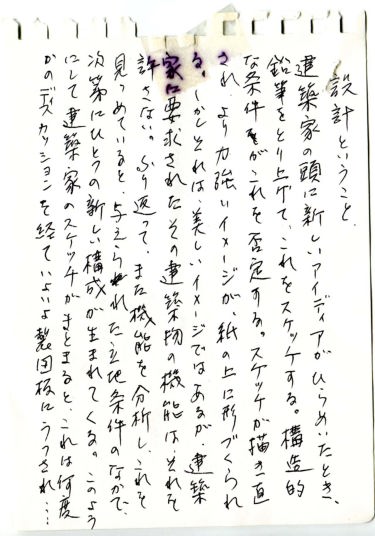 設計ということ、
建築家の頭に新しいアイディアがひらめいたとき、
鉛筆をとり上げて、これをスケッチする。構造的
な条件がこれを否定する。スケッチが描き直
され、より力強いイメージが、紙の上に形づくられ
る。しかしそれは、美しいイメージではあるが、建築
家に要求されたその建築物の機能はそれを
許さない。ふり返って、また機能を分析し、これを
見つめていると、与えられた立地条件のなかで、
次第にひとつの新しい構成が生まれてくる。このよう
にして建築家のスケッチがまとまると、これは何度
かのディスカッションを経ていよいよ製図板にうつされ…